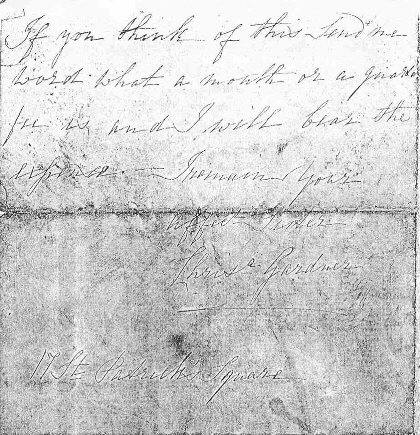 If you think of this send me
word what a month or a quart
fee is and I will bear the
expense. — I remain Your
affec Sister
Chrisa Gardner
17 St Patrick Square